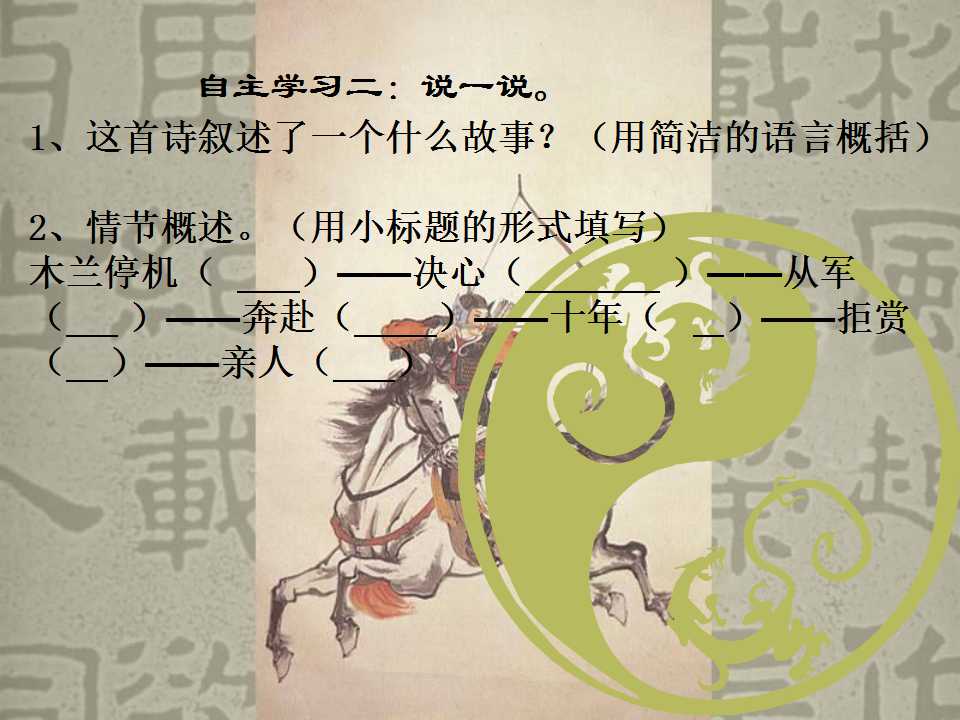 自主学习二：说一说。
1、这首诗叙述了一个什么故事？（用简洁的语言概括）
2、情节概述。（用小标题的形式填写）
木兰停机（ ___）——决心（_______ ）——从军
（___ ）——奔赴（____）——十年（ __）——拒赏
（__）——亲人（___）
載